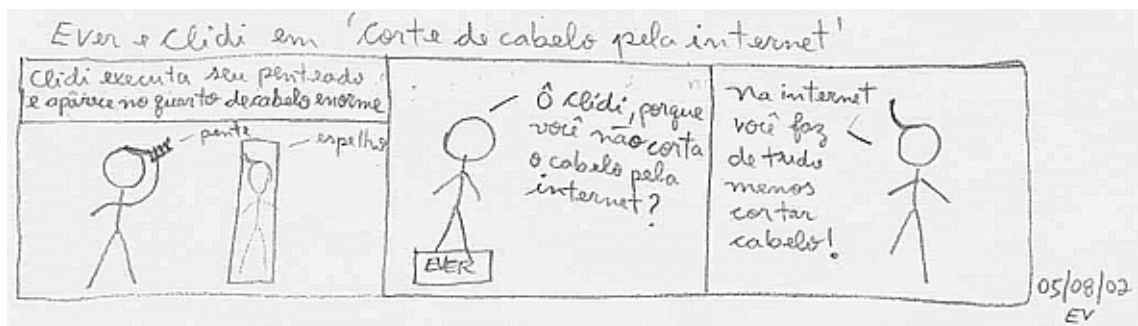 Ever e Clidi em 'Corte de cabelo pela internet'
Clidi executa seu penteado
e aparece no quarto de cabelo enorme
pente
espelho
Ô Clidi, porque
você não corta
o cabelo pela
internet?
EVER
Na internet
você faz
de tudo
menos
cortar
cabelo!
05/08/02
EV